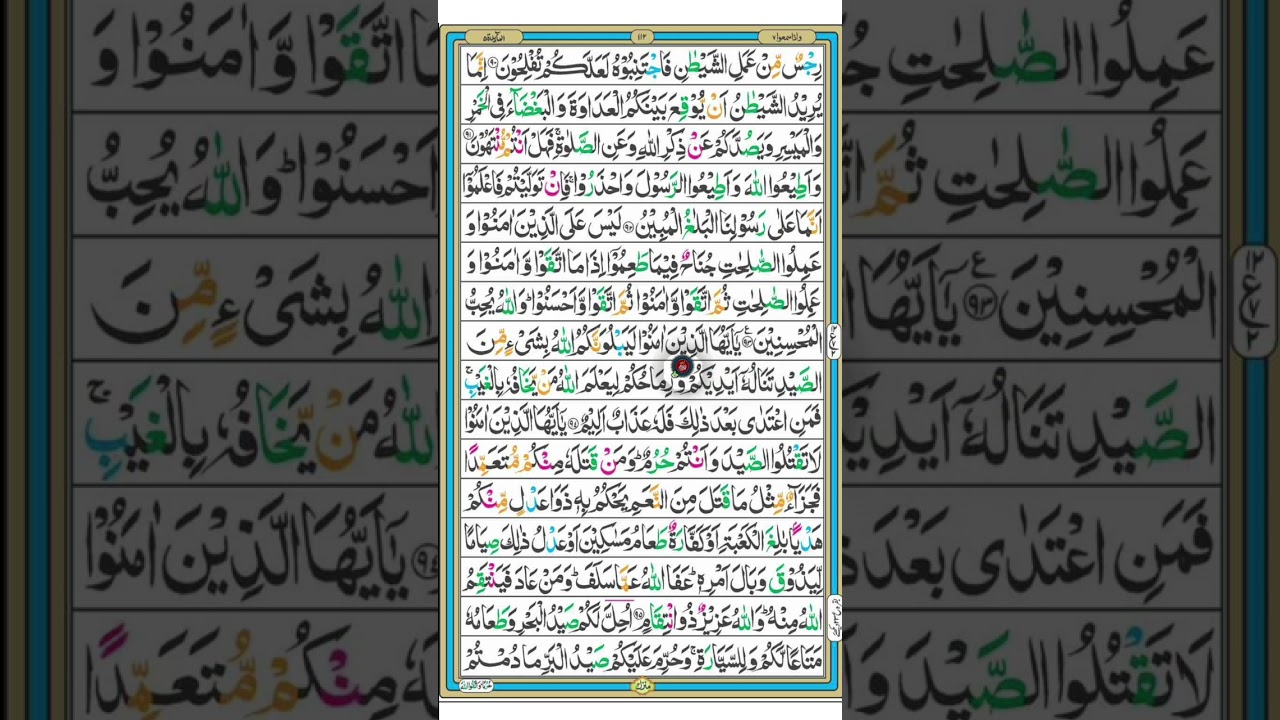 واذا سمعوا ٧ ١١٢ المآئدة ٥
رِجْسٌ مِّنْ عَمَلِ الشَّيْطٰنِ فَاجْتَنِبُوْهُ لَعَلَّكُمْ تُفْلِحُوْنَ ﴿٩٠﴾ اِنَّمَا
يُرِيْدُ الشَّيْطٰنُ اَنْ يُّوْقِعَ بَيْنَكُمُ الْعَدَاوَةَ وَ الْبَغْضَآءَ فِى الْخَمْرِ
وَالْمَيْسِرِ وَيَصُدَّكُمْ عَنْ ذِكْرِ اللّٰهِ وَعَنِ الصَّلٰوةِ ۚ فَهَلْ اَنْتُمْ مُّنْتَهُوْنَ ﴿٩١﴾
وَ اَطِيْعُوا اللّٰهَ وَ اَطِيْعُوا الرَّسُوْلَ وَ احْذَرُوْا ۚ فَاِنْ تَوَلَّيْتُمْ فَاعْلَمُوْۤا
اَنَّمَا عَلٰى رَسُوْلِنَا الْبَلٰغُ الْمُبِيْنُ ﴿٩٢﴾ لَيْسَ عَلَى الَّذِيْنَ اٰمَنُوْا وَ
عَمِلُوا الصّٰلِحٰتِ جُنَاحٌ فِيْمَا طَعِمُوْۤا اِذَا مَا اتَّقَوْا وَّ اٰمَنُوْا وَ
عَمِلُوا الصّٰلِحٰتِ ثُمَّ اتَّقَوْا وَّ اٰمَنُوْا ثُمَّ اتَّقَوْا وَّ اَحْسَنُوْا ؕ وَ اللّٰهُ يُحِبُّ
الْمُحْسِنِيْنَ ﴿٩٣﴾ يٰۤاَيُّهَا الَّذِيْنَ اٰمَنُوْا لَيَبْلُوَنَّكُمُ اللّٰهُ بِشَىْءٍ مِّنَ
الصَّيْدِ تَنَالُهٗۤ اَيْدِيْكُمْ وَ رِمَاحُكُمْ لِيَعْلَمَ اللّٰهُ مَنْ يَّخَافُهٗ بِالْغَيْبِ ۚ
فَمَنِ اعْتَدٰى بَعْدَ ذٰلِكَ فَلَهٗ عَذَابٌ اَلِيْمٌ ﴿٩٤﴾ يٰۤاَيُّهَا الَّذِيْنَ اٰمَنُوْا
لَا تَقْتُلُوا الصَّيْدَ وَ اَنْتُمْ حُرُمٌ ؕ وَ مَنْ قَتَلَهٗ مِنْكُمْ مُّتَعَمِّدًا
فَجَزَآءٌ مِّثْلُ مَا قَتَلَ مِنَ النَّعَمِ يَحْكُمُ بِهٖ ذَوَا عَدْلٍ مِّنْكُمْ
هَدْيًۢا بٰلِغَ الْكَعْبَةِ اَوْ كَفَّارَةٌ طَعَامُ مَسٰكِيْنَ اَوْ عَدْلُ ذٰلِكَ صِيَامًا
لِّيَذُوْقَ وَ بَالَ اَمْرِهٖ ؕ عَفَا اللّٰهُ عَمَّا سَلَفَ ؕ وَ مَنْ عَادَ فَيَنْتَقِمُ
اللّٰهُ مِنْهُ ؕ وَ اللّٰهُ عَزِيْزٌ ذُو انْتِقَامٍ ﴿٩٥﴾ اُحِلَّ لَكُمْ صَيْدُ الْبَحْرِ وَ طَعَامُهٗ
مَتَاعًا لَّكُمْ وَ لِلسَّيَّارَةِ ۚ وَ حُرِّمَ عَلَيْكُمْ صَيْدُ الْبَرِّ مَا دُمْتُمْ
منزل ٢